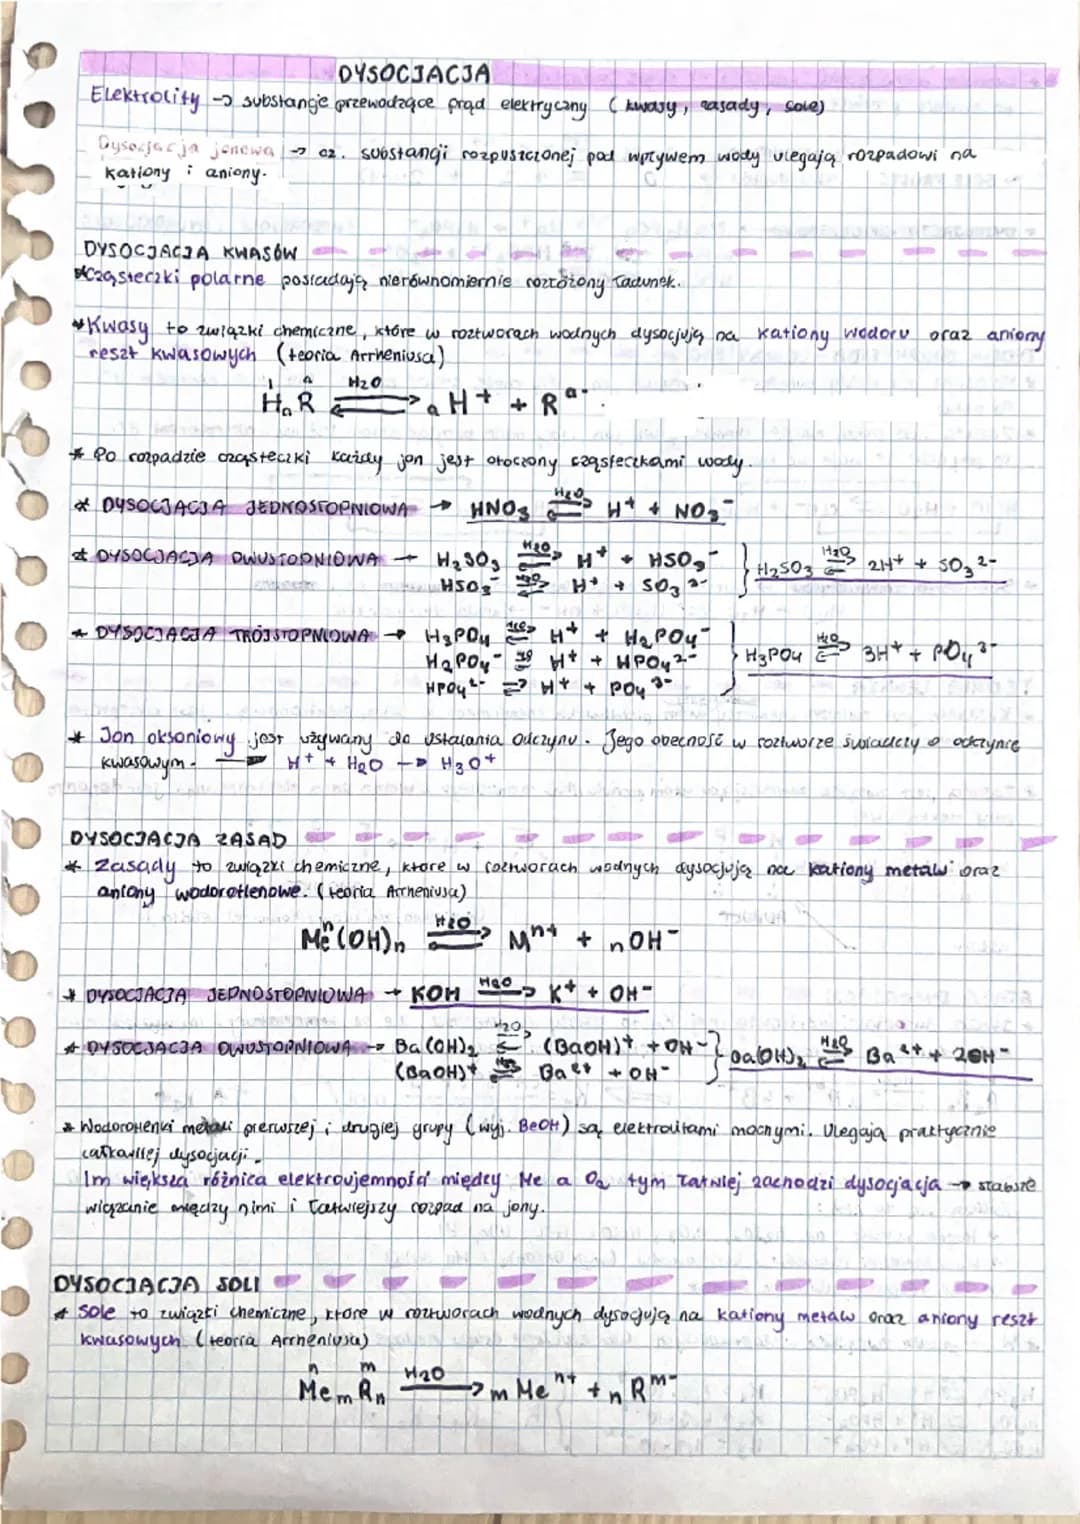 DYSOCJACJA
Elektrolity → substancje przewodzące prąd elektryczny (kwasy, zasady, sole)
Dysocjacja jonowa → cz. substancji rozpuszczonej pod wpływem wody ulegają rozpadowi na
kationy i aniony.
DYSOCJACJA KWASÓW
*Cząsteczki polarne posiadają nierównomiernie rozłożony ładunek.
*Kwasy to związki chemiczne, które w roztworach wodnych dysocjują na kationy wodoru oraz aniony
reszt kwasowych (teoria Arrheniusa)
HₐR ⇌ (H₂O) aH⁺ + Rᵃ⁻
* Po rozpadzie cząsteczki każdy jon jest otoczony cząsteczkami wody.
* DYSOCJACJA JEDNOSTOPNIOWA → HNO₃ ⇌ (H₂O) H⁺ + NO₃⁻
* DYSOCJACJA DWUSTOPNIOWA → H₂SO₃ ⇌ (H₂O) H⁺ + HSO₃⁻ } H₂SO₃ ⇌ (H₂O) 2H⁺ + SO₃²⁻
HSO₃⁻ ⇌ (H₂O) H⁺ + SO₃²⁻
* DYSOCJACJA TRÓJSTOPNIOWA → H₃PO₄ ⇌ (H₂O) H⁺ + H₂PO₄⁻ } H₃PO₄ ⇌ (H₂O) 3H⁺ + PO₄³⁻
H₂PO₄⁻ ⇌ (H₂O) H⁺ + HPO₄²⁻
HPO₄²⁻ ⇌ H⁺ + PO₄³⁻
* Jon oksoniowy jest używany do ustalania odczynu. Jego obecność w roztworze świadczy o odczynie
kwasowym. → H⁺ + H₂O → H₃O⁺
DYSOCJACJA ZASAD
* Zasady to związki chemiczne, które w roztworach wodnych dysocjują na kationy metalu oraz
aniony wodorotlenowe. (teoria Arrheniusa)
Meⁿ(OH)ₙ ⇌ (H₂O) Mⁿ⁺ + nOH⁻
* DYSOCJACJA JEDNOSTOPNIOWA → KOH → (H₂O) K⁺ + OH⁻
* DYSOCJACJA DWUSTOPNIOWA → Ba(OH)₂ ⇌ (H₂O) (BaOH)⁺ + OH⁻ } Ba(OH)₂ ⇌ (H₂O) Ba²⁺ + 2OH⁻
(BaOH)⁺ ⇌ (H₂O) Ba²⁺ + OH⁻
* Wodorotlenki metali pierwszej i drugiej grupy (wyj. BeOH) są elektrolitami mocnymi. Ulegają praktycznie
całkowitej dysocjacji.
Im większa różnica elektroujemności między Me a O₂ tym łatwiej zachodzi dysocjacja → słabsze
wiązanie między nimi i łatwiejszy rozpad na jony.
DYSOCJACJA SOLI
* Sole to związki chemiczne, które w roztworach wodnych dysocjują na kationy metalu oraz aniony reszt
kwasowych (teoria Arrheniusa)
n m
MeₘRₙ → (H₂O) mMeⁿ⁺ + nRᵐ⁻